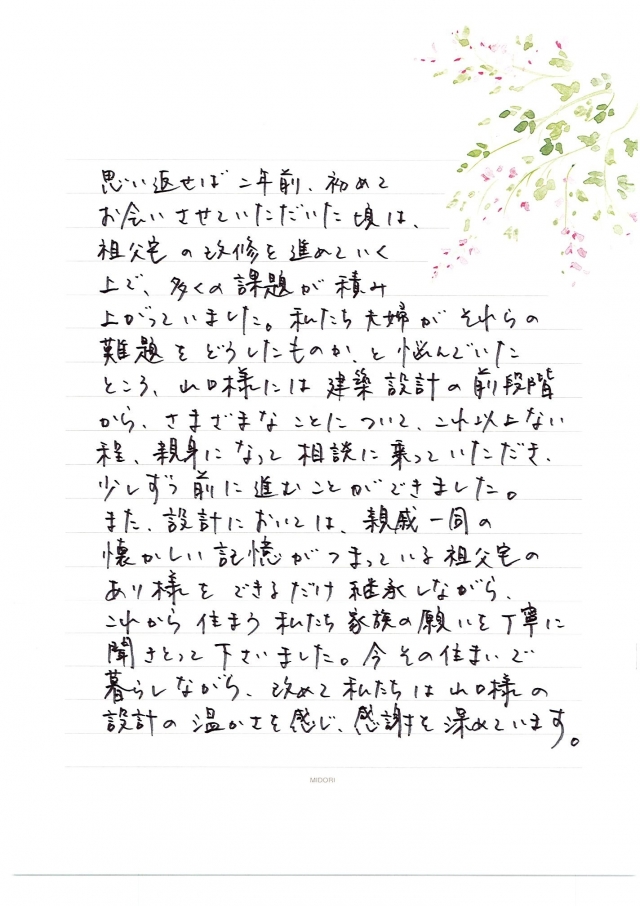 思い返せば二年前、初めて
お会いさせていただいた頃は、
祖父宅の改修を進めていく
上で、多くの課題が積み
上がっていました。私たち夫婦がそれらの
難題をどうしたものか、と悩んでいた
ところ、山口様には建築設計の前段階
から、さまざまなことについて、これ以上ない
程、親身になって相談に乗っていただき、
少しずつ前に進むことができました。
また、設計においては、親戚一同の
懐かしい記憶がつまっている祖父宅の
あり様をできるだけ継承しながら、
これから住まう私たち家族の願いを丁寧に
聞きとって下さいました。今その住まいで
暮らしながら、改めて私たちは山口様の
設計の温かさを感じ、感謝を深めています。
MIDORI